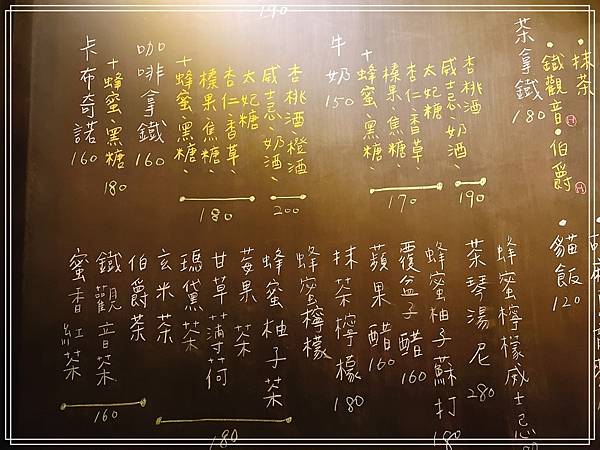 190
・抹茶
・鐵觀音Ⓗ・伯爵Ⓗ
茶拿鐵 180
杏桃酒
威士忌、奶酒、
190
太妃糖
杏仁、香草、
榛果、焦糖、
+蜂蜜、黑糖、
170
牛奶 150
杏桃酒 橙酒
威士忌、奶酒、
200
太妃糖
杏仁、香草、
榛果、焦糖、
+蜂蜜、黑糖、
180
咖啡拿鐵 160
+蜂蜜、黑糖 180
卡布奇諾 160
・貓飯 120
蜂蜜檸檬威士忌
茶琴湯尼 280
蜂蜜柚子蘇打 180
覆盆子醋 160
蘋果醋 160
抹茶檸檬 180
蜂蜜檸檬
蜂蜜柚子茶
莓果茶
甘草薄荷
瑪黛茶
玄米茶
180
伯爵茶
鐵觀音茶
蜜香紅茶
160